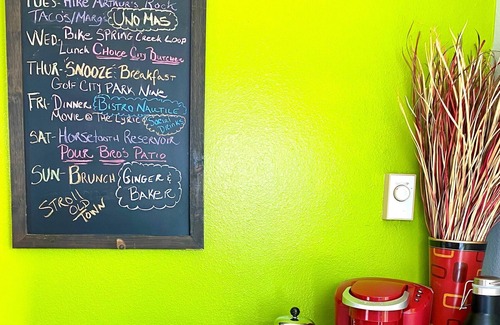 TUES- HIKE ARTHUR'S ROCK
TACO'S/MARG'S UNO MAS
WED- BIKE SPRING CREEK LOOP
LUNCH CHOICE CITY BUTCHER
THUR- SNOOZE BREAKFAST
GOLF CITY PARK NINE
FRI- DINNER BISTRO NAUTILE
MOVIE @ THE LYRIC SOCIAL DRINKS
SAT- HORSETOOTH RESERVOIR
POUR BRO'S PATIO
SUN- BRUNCH GINGER &
BAKER
STROLL
OLD
TOWN